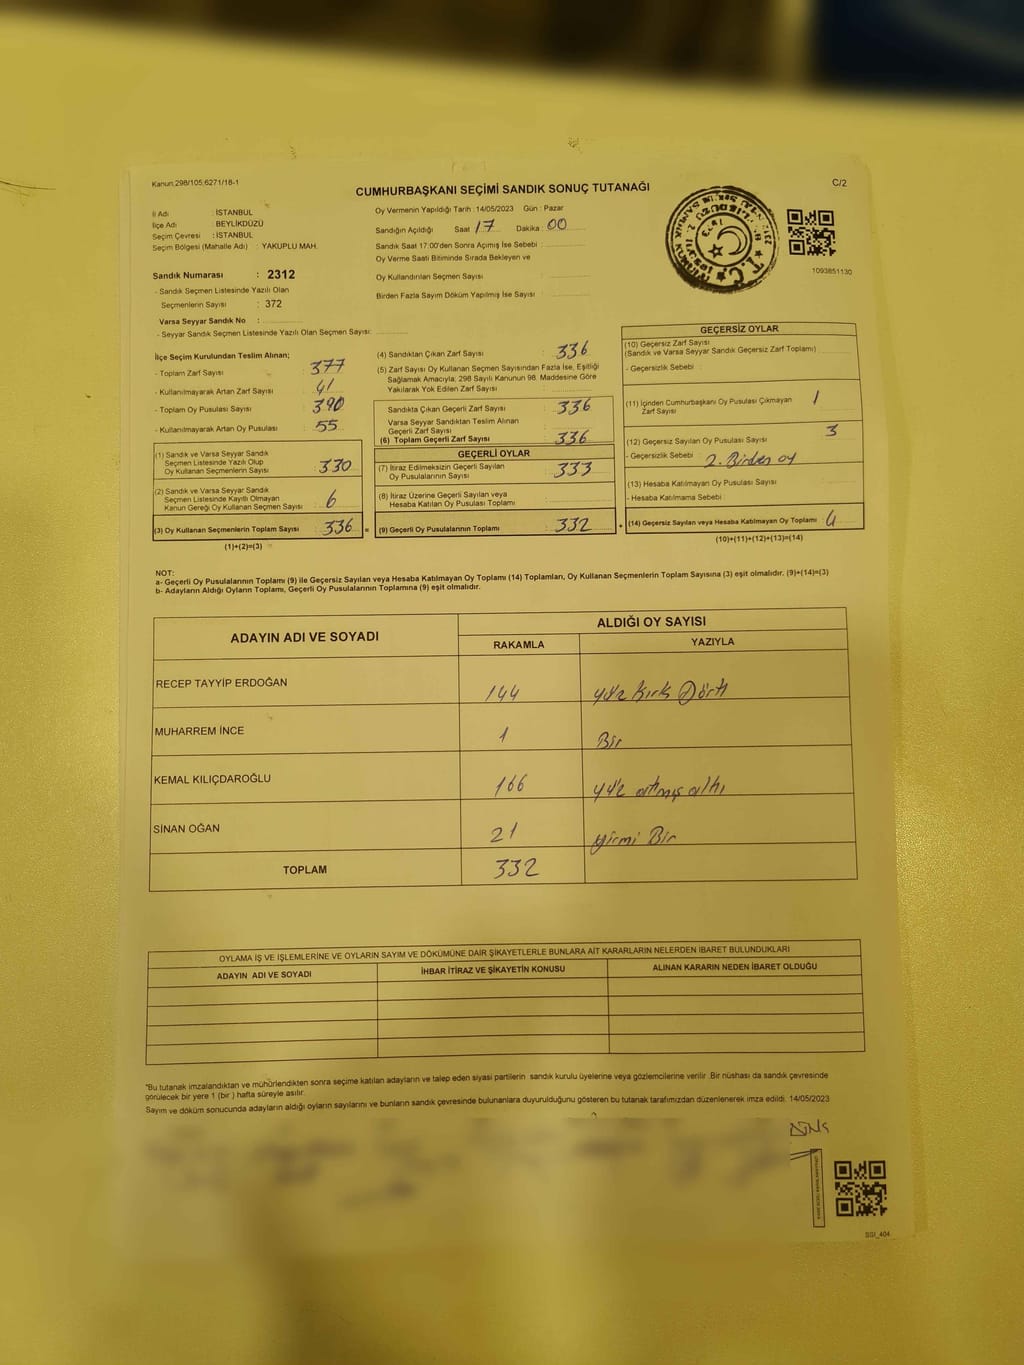 Kanun,298/105;6271/18-1
CUMHURBAŞKANI SEÇİMİ SANDIK SONUÇ TUTANAĞI
C/2
İl Adı : İSTANBUL
İlçe Adı : BEYLİKDÜZÜ
Seçim Çevresi : İSTANBUL
Seçim Bölgesi (Mahalle Adı) : YAKUPLU MAH.
Sandık Numarası : 2312
- Sandık Seçmen Listesinde Yazılı Olan
Seçmenlerin Sayısı : 372
Varsa Seyyar Sandık No :
- Seyyar Sandık Seçmen Listesinde Yazılı Olan Seçmen Sayısı:
Oy Vermenin Yapıldığı Tarih : 14/05/2023 Gün : Pazar
Sandığın Açıldığı Saat : 17 Dakika : 00
Sandık Saat 17:00'den Sonra Açımış İse Sebebi :
Oy Verme Saati Bitiminde Sırada Bekleyen ve
Oy Kullandırılan Seçmen Sayısı :
Birden Fazla Sayım Döküm Yapılmış İse Sayısı :
1093851130
İlçe Seçim Kurulundan Teslim Alınan;
- Toplam Zarf Sayısı : 377
- Kullanılmayarak Artan Zarf Sayısı : 41
- Toplam Oy Pusulası Sayısı : 390
- Kullanılmayarak Artan Oy Pusulası : 55
(1) Sandık ve Varsa Seyyar Sandık
Seçmen Listesinde Yazılı Olup
Oy Kullanan Seçmenlerin Sayısı : 330
(2) Sandık ve Varsa Seyyar Sandık
Seçmen Listesinde Kayıtlı Olmayan
Kanun Gereği Oy Kullanan Seçmen Sayısı : 6
(3) Oy Kullanan Seçmenlerin Toplam Sayısı : 336 =
(1)+(2)=(3)
(4) Sandıktan Çıkan Zarf Sayısı : 336
(5) Zarf Sayısı Oy Kullanan Seçmen Sayısından Fazla İse, Eşitliği
Sağlamak Amacıyla; 298 Sayılı Kanunun 98. Maddesine Göre
Yakılarak Yok Edilen Zarf Sayısı :
Sandıkta Çıkan Geçerli Zarf Sayısı : 336
Varsa Seyyar Sandıktan Teslim Alınan
Geçerli Zarf Sayısı :
(6) Toplam Geçerli Zarf Sayısı : 336
GEÇERLİ OYLAR
(7) İtiraz Edilmeksizin Geçerli Sayılan
Oy Pusulalarının Sayısı : 333
(8) İtiraz Üzerine Geçerli Sayılan veya
Hesaba Katılan Oy Pusulası Toplamı :
(9) Geçerli Oy Pusulalarının Toplamı : 332 +
GEÇERSİZ OYLAR
(10) Geçersiz Zarf Sayısı
(Sandık ve Varsa Seyyar Sandık Geçersiz Zarf Toplamı)
- Geçersizlik Sebebi :
(11) İçinden Cumhurbaşkanı Oy Pusulası Çıkmayan
Zarf Sayısı : 1
(12) Geçersiz Sayılan Oy Pusulası Sayısı : 3
- Geçersizlik Sebebi : 2. Birden oy
(13) Hesaba Katılmayan Oy Pusulası Sayısı :
- Hesaba Katılmama Sebebi :
(14) Geçersiz Sayılan veya Hesaba Katılmayan Oy Toplamı : 4
(10)+(11)+(12)+(13)=(14)
NOT:
a- Geçerli Oy Pusulalarının Toplamı (9) ile Geçersiz Sayılan veya Hesaba Katılmayan Oy Toplamı (14) Toplamları, Oy Kullanan Seçmenlerin Toplam Sayısına (3) eşit olmalıdır. (9)+(14)=(3)
b- Adayların Aldığı Oyların Toplamı, Geçerli Oy Pusulalarının Toplamına (9) eşit olmalıdır.
ADAYIN ADI VE SOYADI
ALDIĞI OY SAYISI
RAKAMLA YAZIYLA
RECEP TAYYİP ERDOĞAN 144 yüz kırk Dört
MUHARREM İNCE 1 Bir
KEMAL KILIÇDAROĞLU 166 yüz atmış altı
SİNAN OĞAN 21 yirmi Bir
TOPLAM 332
OYLAMA İŞ VE İŞLEMLERİNE VE OYLARIN SAYIM VE DÖKÜMÜNE DAİR ŞİKAYETLERLE BUNLARA AİT KARARLARIN NELERDEN İBARET BULUNDUKLARI
ADAYIN ADI VE SOYADI İHBAR İTİRAZ VE ŞİKAYETİN KONUSU ALINAN KARARIN NEDEN İBARET OLDUĞU
*Bu tutanak imzalandıktan ve mühürlendikten sonra seçime katılan adayların ve talep eden siyasi partilerin sandık kurulu üyelerine veya gözlemcilerine verilir. Bir nüshası da sandık çevresinde
görülecek bir yere 1 (bir ) hafta süreyle asılır.
Sayım ve döküm sonucunda adayların aldığı oyların sayılarını ve bunların sandık çevresinde bulunanlara duyurulduğunu gösteren bu tutanak tarafımızdan düzenlenerek imza edildi. 14/05/2023
SGI_404